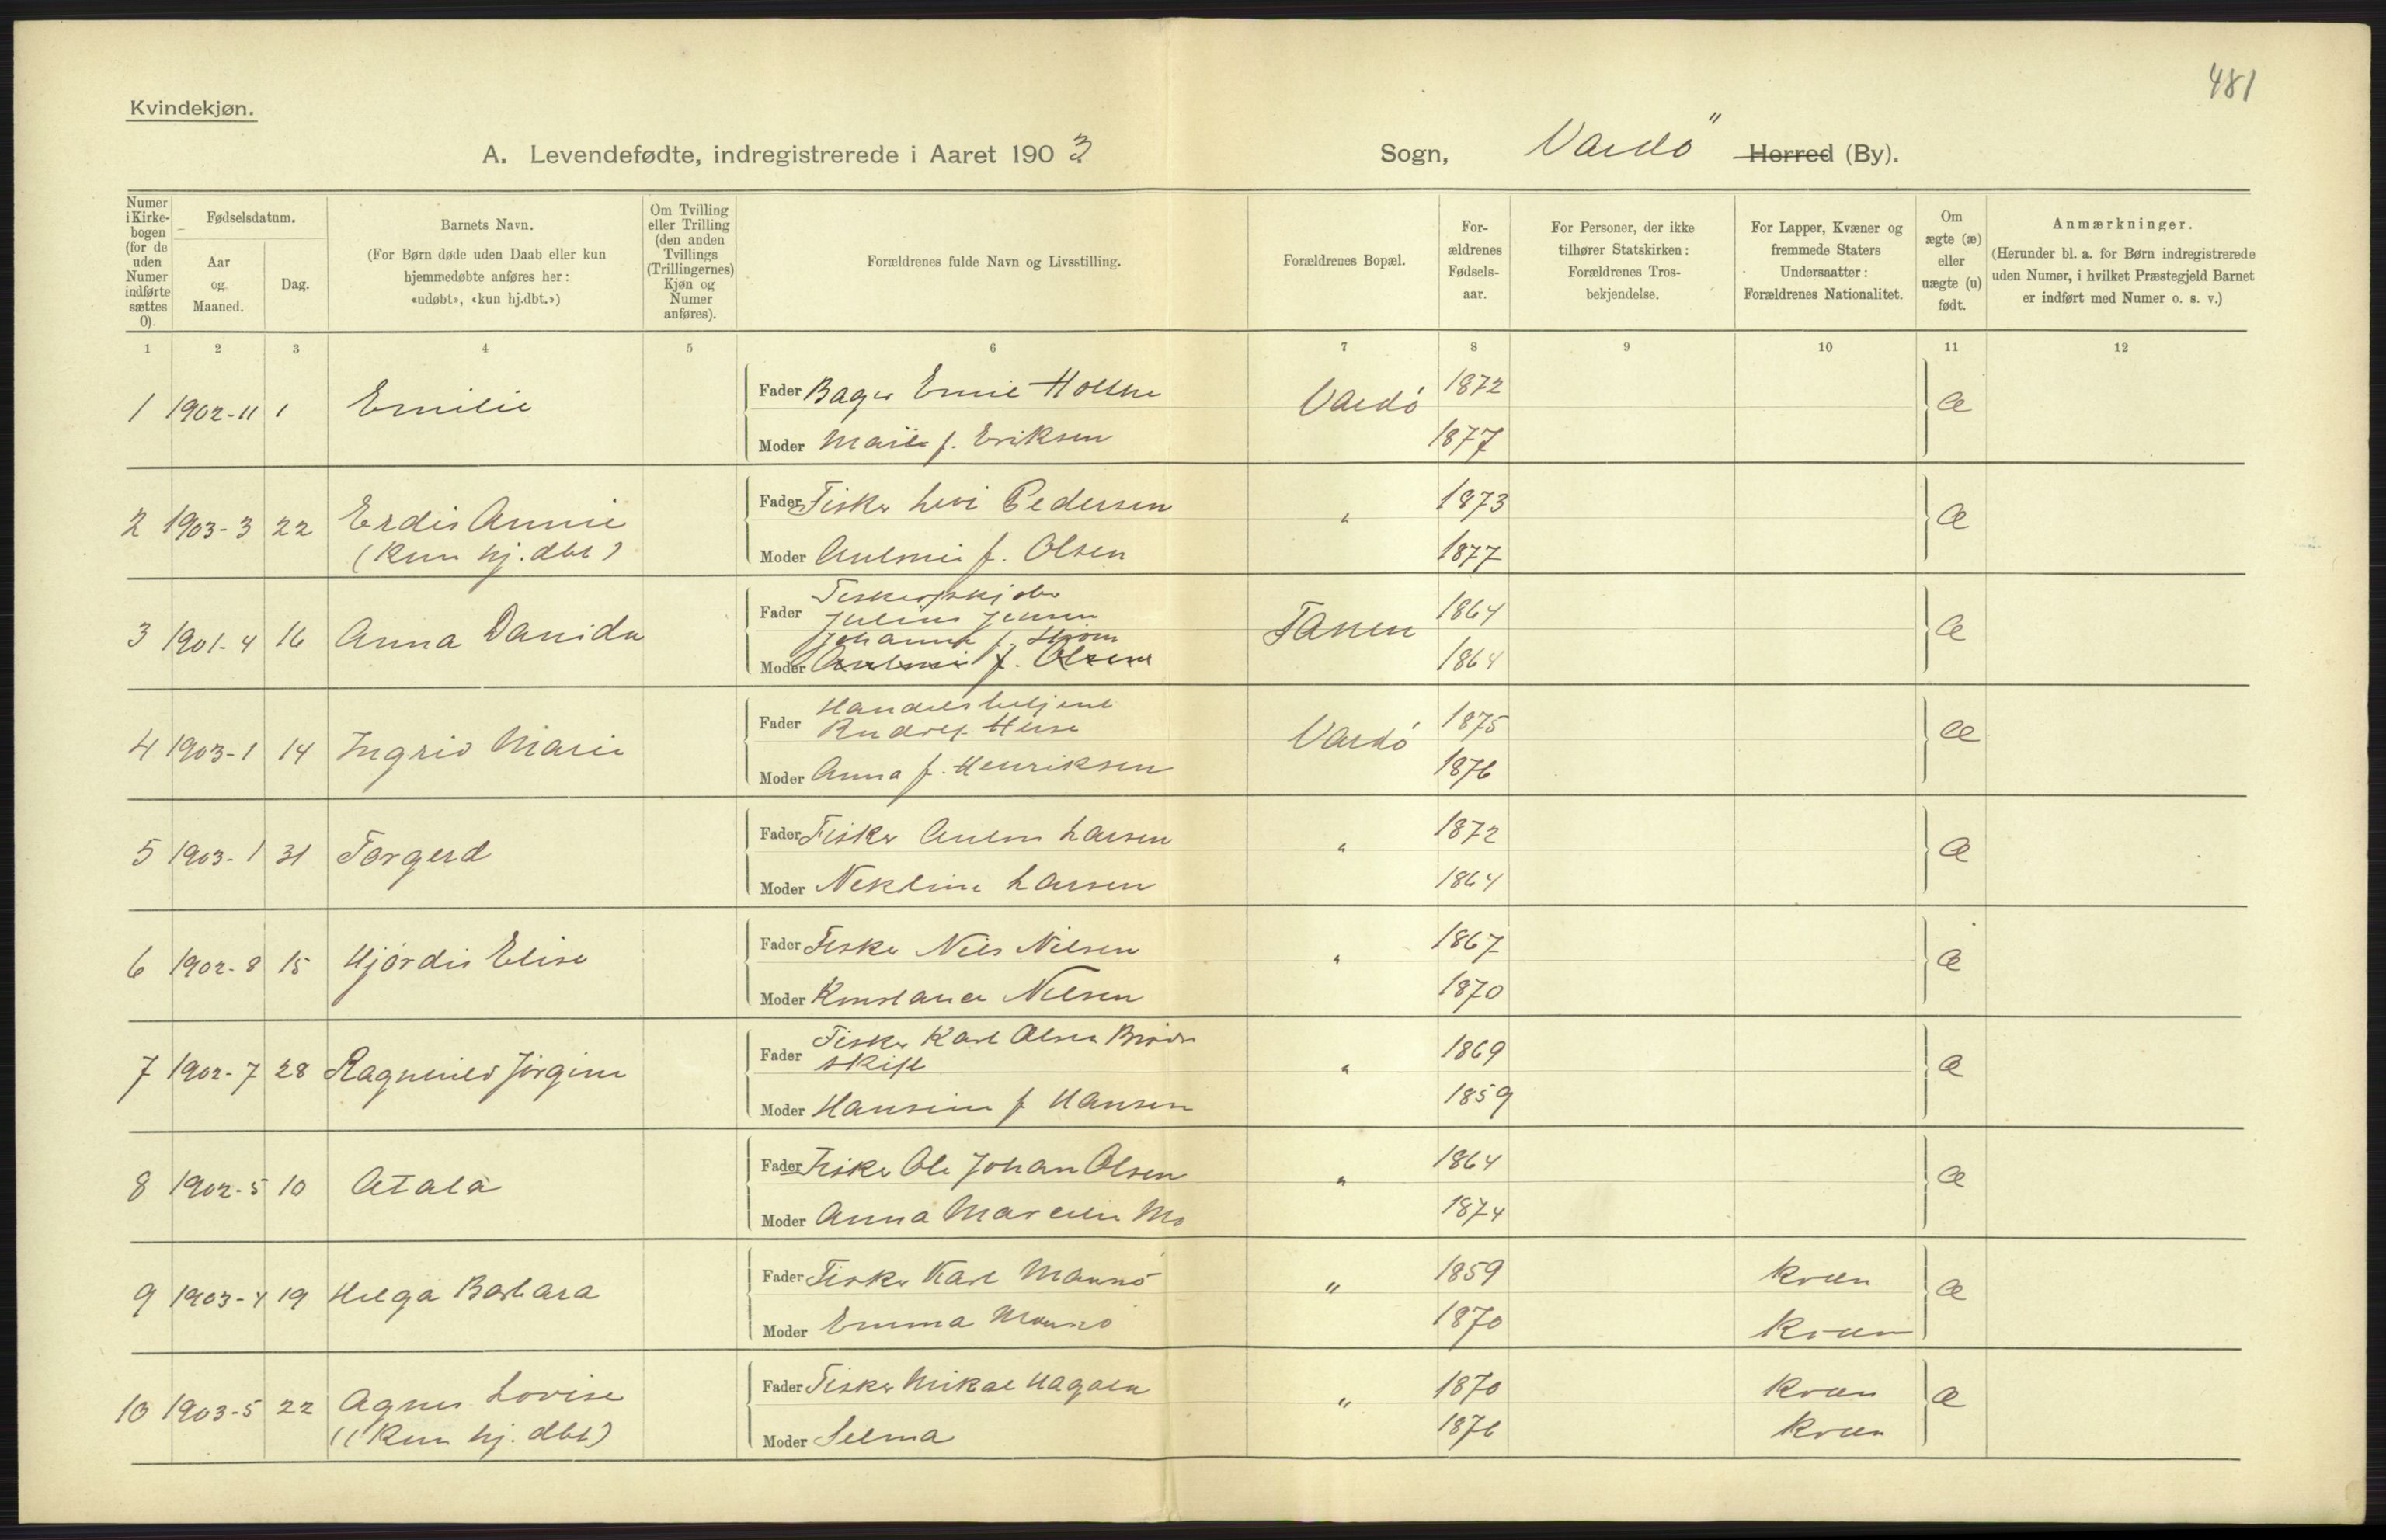 481
Kvindekjøn.
A. Levendefødte, indregistrerede i Aaret 1903 Sogn, Vardö Herred (By).
Numer i Kirke-bogen (for de uden Numer indførte sættes 0).
Fødselsdatum.
Aar og Maaned.
Dag.
Barnets Navn.
(For Børn døde uden Daab eller kun hjemmedøbte anføres her: «udøbt», «kun hj.dbt.»)
Om Tvilling eller Trilling (den anden Tvillings (Trillingernes) Kjøn og Numer anføres).
Forældrenes fulde Navn og Livsstilling.
Forældrenes Bopæl.
For-ældrenes Fødsels-aar.
For Personer, der ikke tilhører Statskirken: Forældrenes Tros-bekjendelse.
For Lapper, Kvæner og fremmede Staters Undersaatter: Forældrenes Nationalitet.
Om ægte (æ) eller uægte (u) født.
Anmærkninger.
(Herunder bl. a. for Børn indregistrerede uden Numer, i hvilket Præstegjeld Barnet er indført med Numer o. s. v.)
1 2 3 4 5 6 7 8 9 10 11 12
1 1902-11 1 Emilie Fader Bager Emil Vardö 1872 æ
Moder f. Eriksen 1877
2 1903-3 22 Erdis Annie Fader Fisker Levi Pedersen " 1873 æ
(kun hj.dbt) Moder f. Olsen 1877
3 1901-4 16 Anna Danida Fader Julius Jensen Tanen 1864 æ
Johanna f. Strøm
Moder f. Olsen 1864
4 1903-1 14 Ingrid Marie Fader Handelsbetjent Vardö 1875 æ
Rudolf
Moder Anna f. Henriksen 1876
5 1903-1 31 Torgerd Fader Fisker Anton Larsen " 1872 æ
Moder Larsen 1864
6 1902-8 15 Hjördis Elise Fader Fisker Nils Nilsen " 1867 æ
Moder Konstance Nilsen 1870
7 1902-7 28 Ragnhild Jörgine Fader Fisker Karl Olsen Brod " 1869 æ
skift
Moder Hansine f Hansen 1859
8 1902-5 10 Atala Fader Fisker Ole Johan Olsen " 1864 æ
Moder Anna Mo 1874
9 1903-4 19 Helga Barbara Fader Fisker Karl Mannö " 1859 kvæn æ
Moder Emma Mannö 1870 kvæn
10 1903-5 22 Agnes Lovise Fader Fisker Mikal " 1870 kvæn æ
(kun hj. dbt) Moder Selma 1876 kvæn